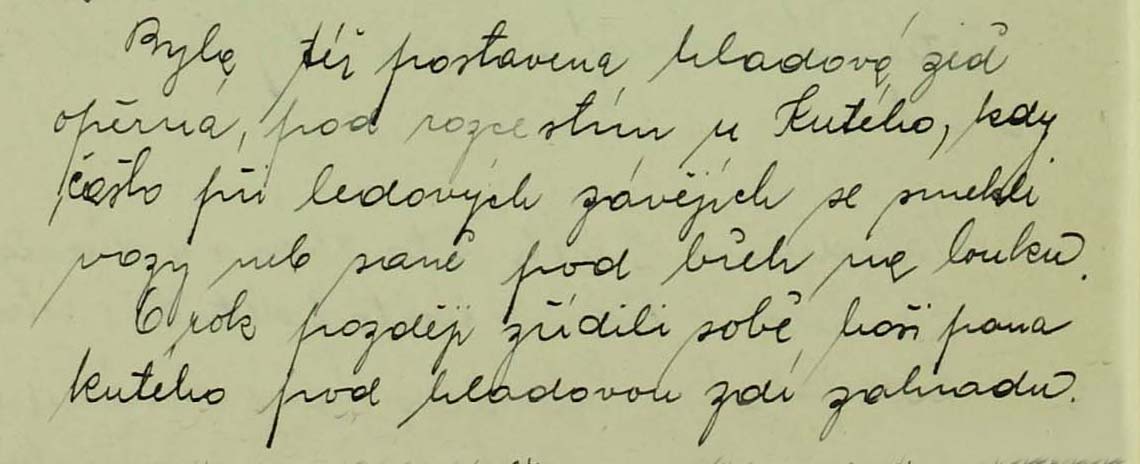 Byla též postavena hladová zeď
opěrná, pod rozcestím u Kutého, kdy
často při ledových závějích se smekli
vozy neb saně pod břeh na louku.
O rok později zřídili sobě, hoši pana
Kutého pod hladovou zdí zahradu.